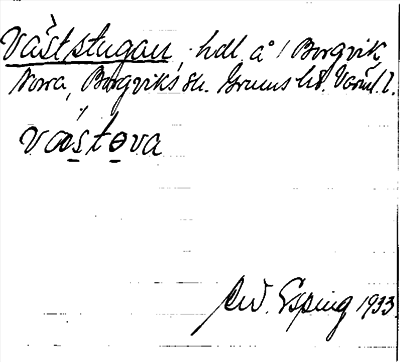 Väststugan, hdl. å 1 Borgvik
Norra, Borgviks sn. Grums hd. Värml. l.
vástɵva
Esping 1933.